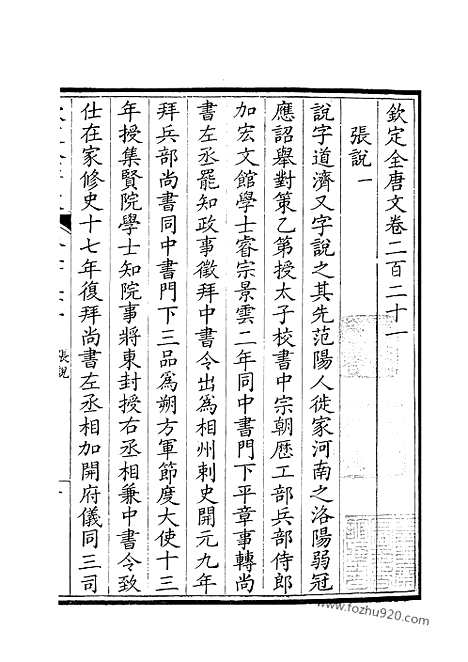 欽定全唐文卷二百二十一
張說一
說字道濟又字說之其先范陽人徙家河南之洛陽弱冠
應詔舉對策乙第授太子校書中宗朝歷工部兵部侍郎
加宏文館學士睿宗景雲二年同中書門下平章事轉尚
書左丞罷知政事徵拜中書令出為相州刺史開元九年
拜兵部尚書同中書門下三品為朔方軍節度大使十三
年授集賢院學士知院事將東封授右丞相兼中書令致
仕在家修史十七年復拜尚書左丞相加開府儀同三司
張說
一
www.fozhu920.com